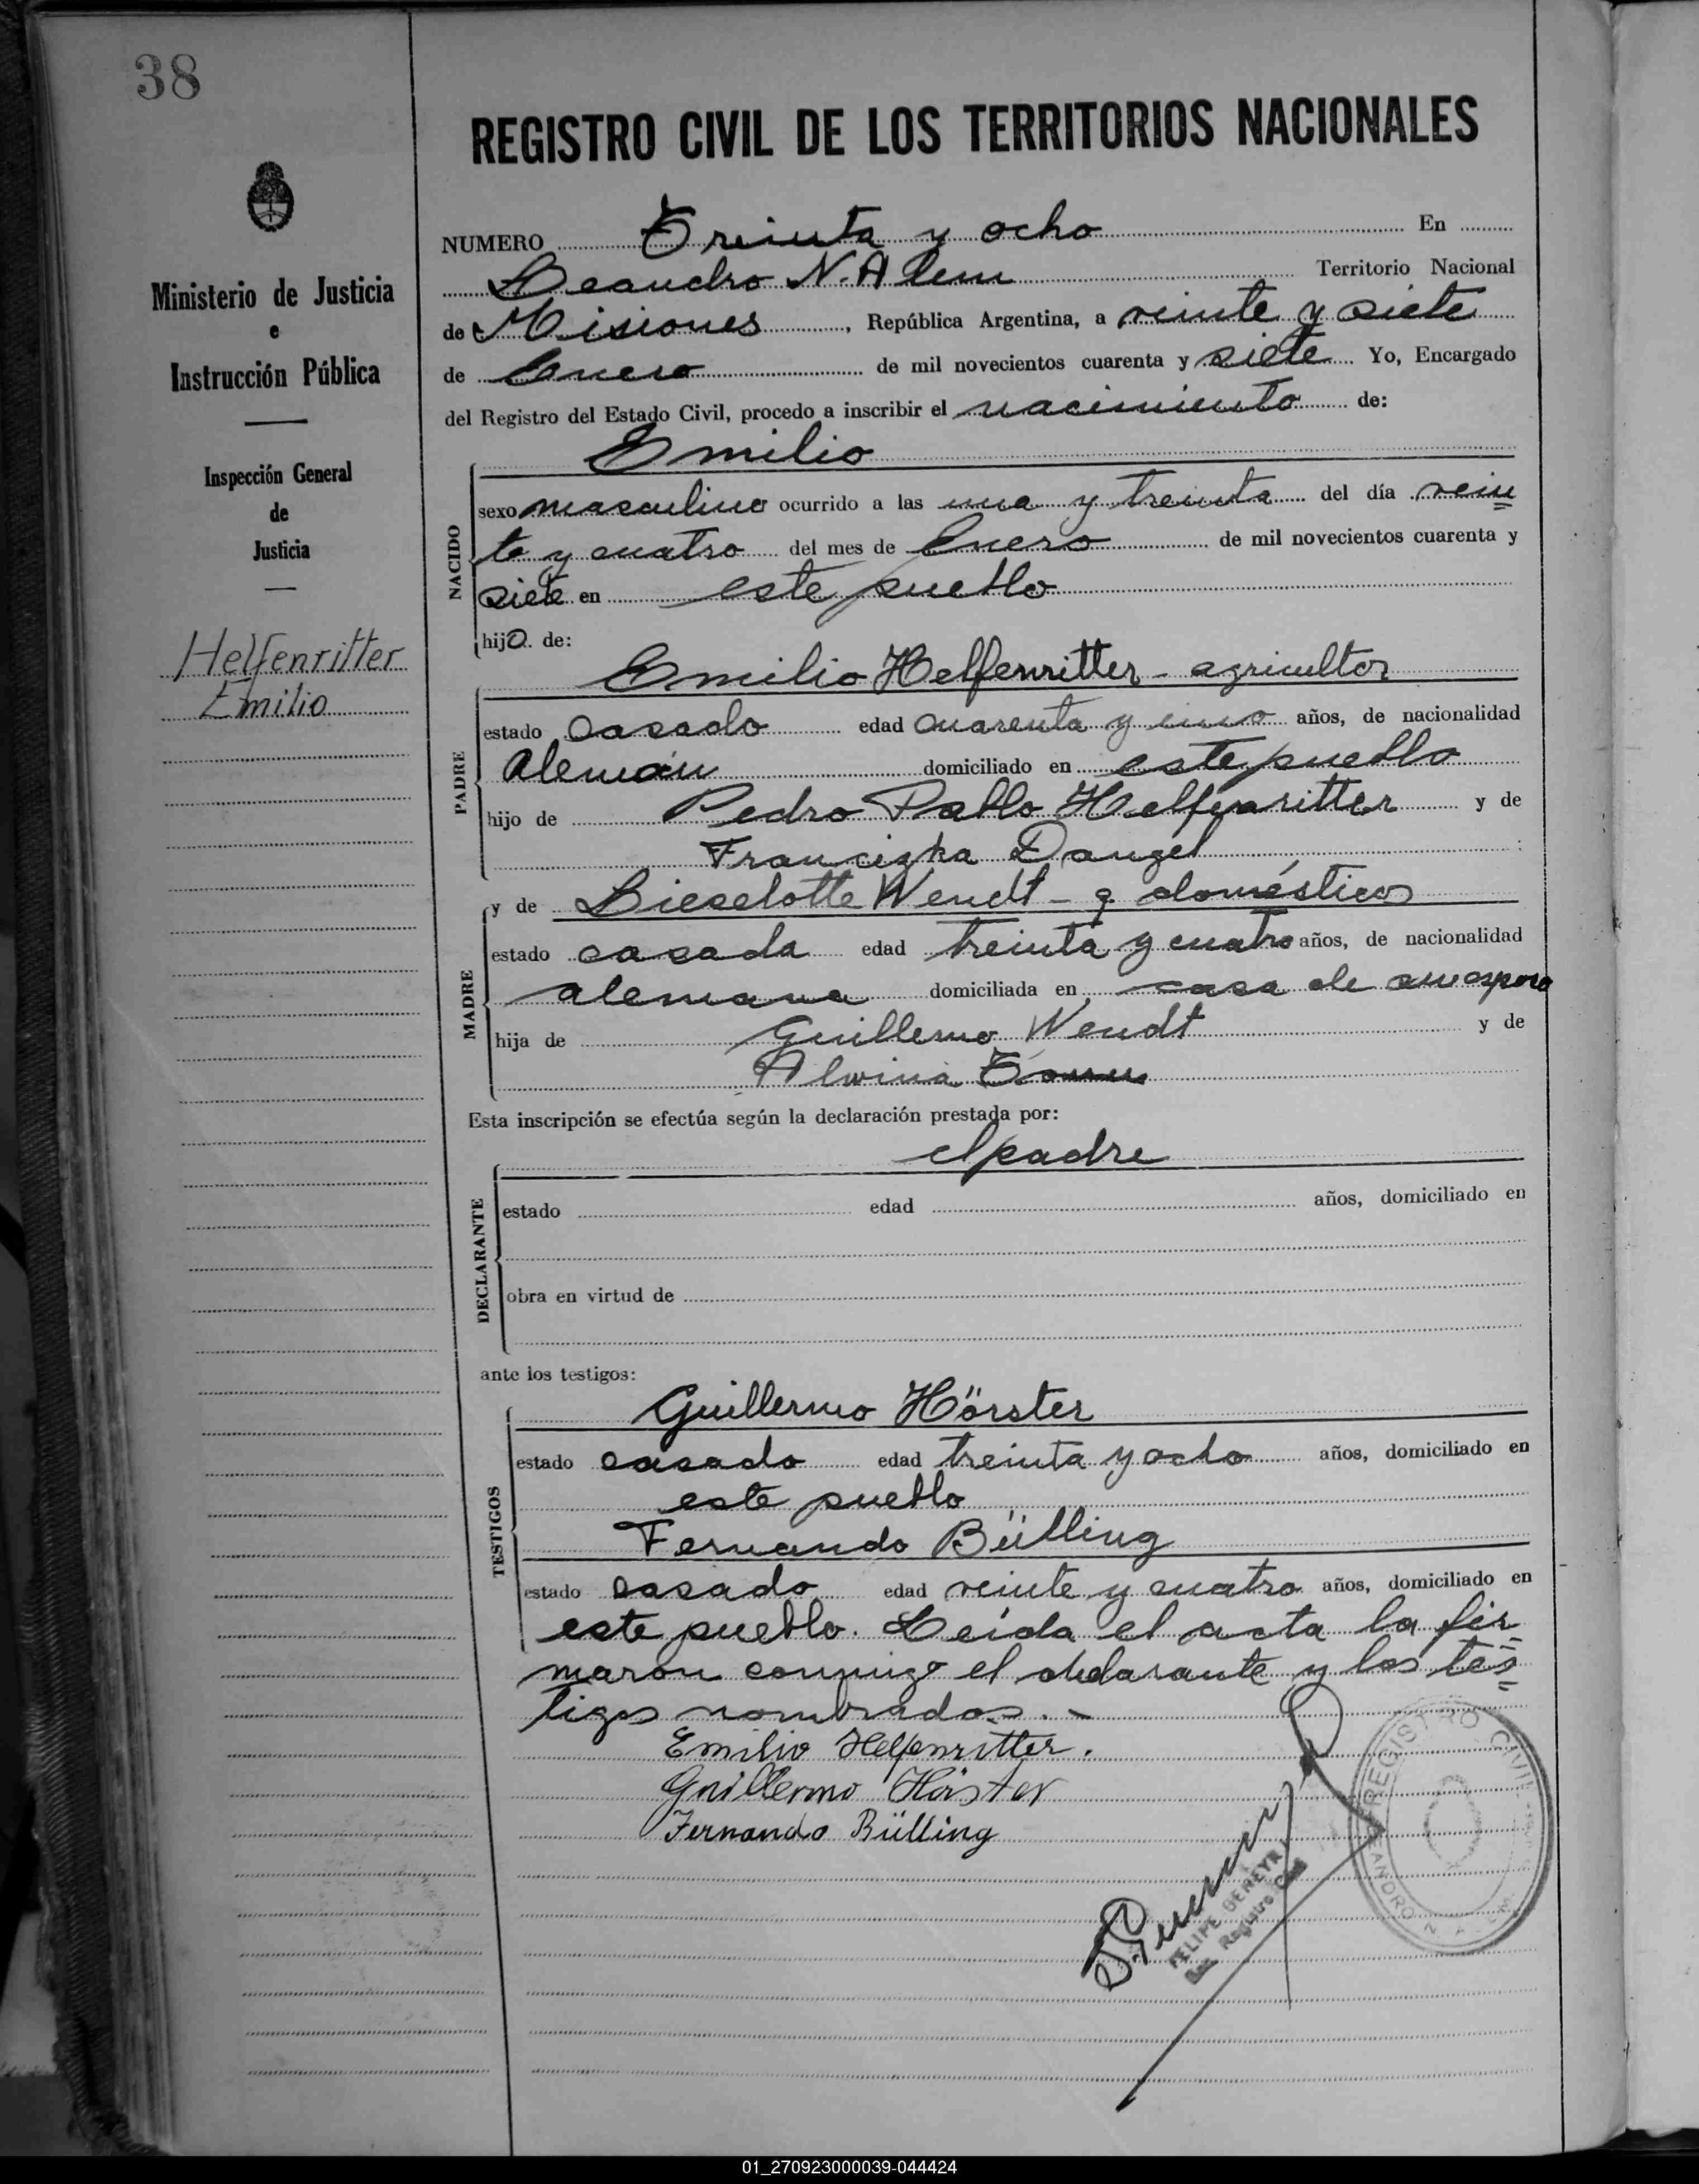 38
REGISTRO CIVIL DE LOS TERRITORIOS NACIONALES
Ministerio de Justicia
e
Instrucción Pública
Inspección General
de
Justicia
Helfenritter
Emilio
NUMERO Treinta y ocho En
Leandro N. Alem Territorio Nacional
de Misiones, República Argentina, a veinte y siete
de Enero de mil novecientos cuarenta y siete Yo, Encargado
del Registro del Estado Civil, procedo a inscribir el nacimiento de:
Emilio
NACIDO
sexo masculino ocurrido a las una y treinta del día vein
te y cuatro del mes de Enero de mil novecientos cuarenta y
siete en este pueblo
hijo de:
Emilio Helfenritter - agricultor
PADRE
estado casado edad cuarenta y uno años, de nacionalidad
Alemán domiciliado en este pueblo
hijo de Pedro Pablo Helfenritter y de
Franciszka Dangel
y de Lieselotte Wendt - q. domésticos
MADRE
estado casada edad treinta y cuatro años, de nacionalidad
alemana domiciliada en casa de su esposo
hija de Guillermo Wendt y de
Alwina
Esta inscripción se efectúa según la declaración prestada por:
el padre
DECLARANTE
estado edad años, domiciliado en
obra en virtud de
ante los testigos:
Guillermo Hörster
TESTIGOS
estado casado edad treinta y ocho años, domiciliado en
este pueblo
Fernando Bülling
estado casado edad veinte y cuatro años, domiciliado en
este pueblo. Leída el acta la fir=
maron conmigo el declarante y los tes=
tigos nombrados.-
Emilio Helfenritter.
Guillermo Hörster
Fernando Bülling
FELIPE PEREYRA
Enc. Registro Civil
REGISTRO CIVIL
LEANDRO N. ALEM
01_270923000039-044424